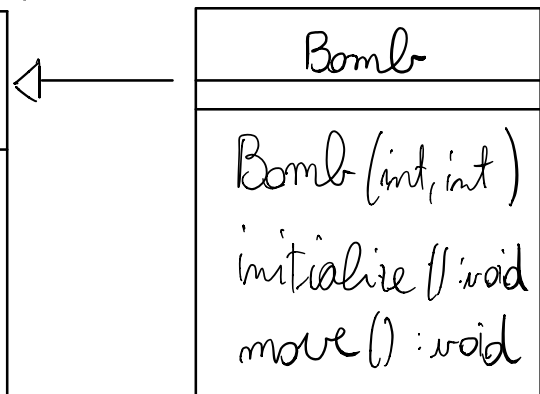 Bomb
Bomb(int, int)
initialize():void
move() : void